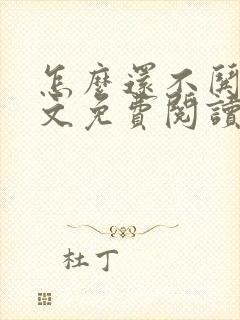 怎麼還不
文免費閱讀
杜丁